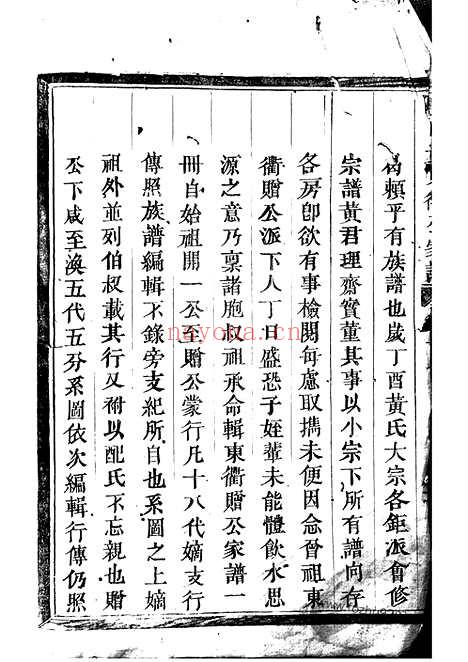 賴乎有族譜也歲丁酉黃氏大宗各鉅派會修
宗譜黃君理齋實董其事以小宗下所有譜向存
各房卽欲有事檢閱每慮取攜未便因念晉祖東
衢贈公派下人丁日盛恐子姪輩未能體飲水思
源之意乃稟諸胞叔祖承命輯東衢贈公家譜一
冊自始祖開一公至贈公蒙行凡十八代嫡支行
傳照族譜編輯不錄旁支紀所自也系圖之上嫡
祖外並列伯叔載其行又祔以配氏不忘親也贈
公下咸至渙五代五分系圖依次編輯行傳仍照
nayona.cn